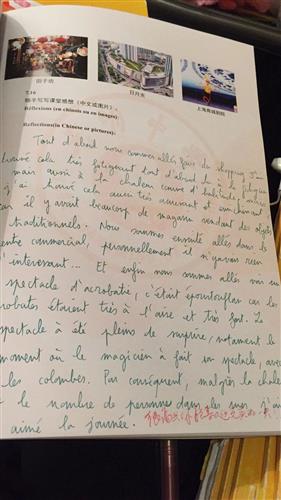 田子坊 日月光 上海馬戲團
7.16
Réflexions (en chinois ou en images):
Reflections(in Chinese or pictures):
Tout d'abord nous sommes allés faire du shopping. J'ai
trouvé cela très fatiguant tout d'abord dû à la fatigue
mais aussi à la chaleur comme d'habitude, ensuite
j'ai trouvé cela aussi très amusant et enrichissant
car il y avait beaucoup de magasin vendant des objets
traditionnels. Nous sommes ensuite allés dans le
centre commercial, personnellement il n'y avait rien
d'interessant... Et enfin nous sommes allés voir un
spectacle d'acrobatie, c'était époustouflan car les
acrobates étaient très à l'aise et très fort. Le
spectacle a été pleins de surprise, notament le
moment où le magicien à fait un spectacle, avec
les colombes. Par conséquent, malgrès la chaleur
et le nombre de personnes dans les rues j'ai
aimé la journée.